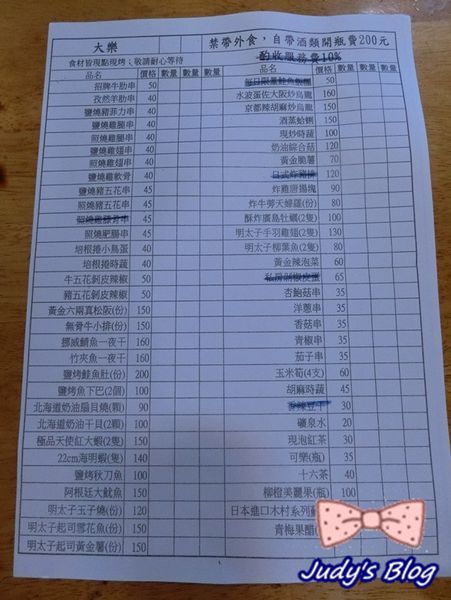 大樂
禁帶外食，自帶酒類開瓶費200元
食材皆現點現烤；敬請耐心等待
酌收服務費10%
品名 價格 數量 數量 數量
招牌牛肋串 50
孜然羊肋串 40
鹽燒豬菲力串 40
鹽燒雞腿串 40
照燒雞腿串 40
鹽燒雞翅串 40
照燒雞翅串 40
鹽燒雞軟骨 40
鹽燒豬五花串 45
照燒豬五花串 45
照燒雞膝骨串 45
照燒肥腸串 45
培根捲小鳥蛋 40
培根捲時蔬 40
牛五花剝皮辣椒 50
豬五花剝皮辣椒 50
黃金六兩真松阪(份) 150
無骨牛小排(份) 150
挪威鯖魚一夜干 160
竹夾魚一夜干 160
鹽烤鮭魚肚(份) 200
鹽烤魚下巴(2個) 100
北海道奶油扇貝燒(顆) 90
北海道奶油干貝(2顆) 100
極品天使紅大蝦(2隻) 150
22cm海明蝦(隻) 140
鹽烤秋刀魚 100
阿根廷大魷魚 150
明太子玉子燒(份) 120
明太子起司雪花魚(份) 150
明太子起司黃金薯(份) 150
品名 價格 數量 數量 數量
每日限量鮭魚飯糰 50
水波蛋佐大阪炒烏龍 150
京都辣胡麻炒烏龍 150
酒蒸蛤蜊 150
現炒時蔬 100
奶油綜合菇 120
黃金脆薯 70
日式炸豬排 120
炸雞唐揚塊 90
炸牛蒡天婦羅(份) 90
酥炸廣島牡蠣(2隻) 100
明太子手羽雞翅(2隻) 130
明太子柳葉魚(2隻) 80
黃金辣泡菜 60
私房剁椒皮蛋 65
杏鮑菇串 35
洋蔥串 35
香菇串 35
青椒串 35
茄子串 35
玉米筍(4支) 60
胡麻時蔬 45
香辣豆干 30
礦泉水 20
現泡紅茶 30
可樂(瓶) 35
十六茶 40
柳橙美麗果(瓶) 100
日本進口木村系列
青梅果醋
Judy's Blog